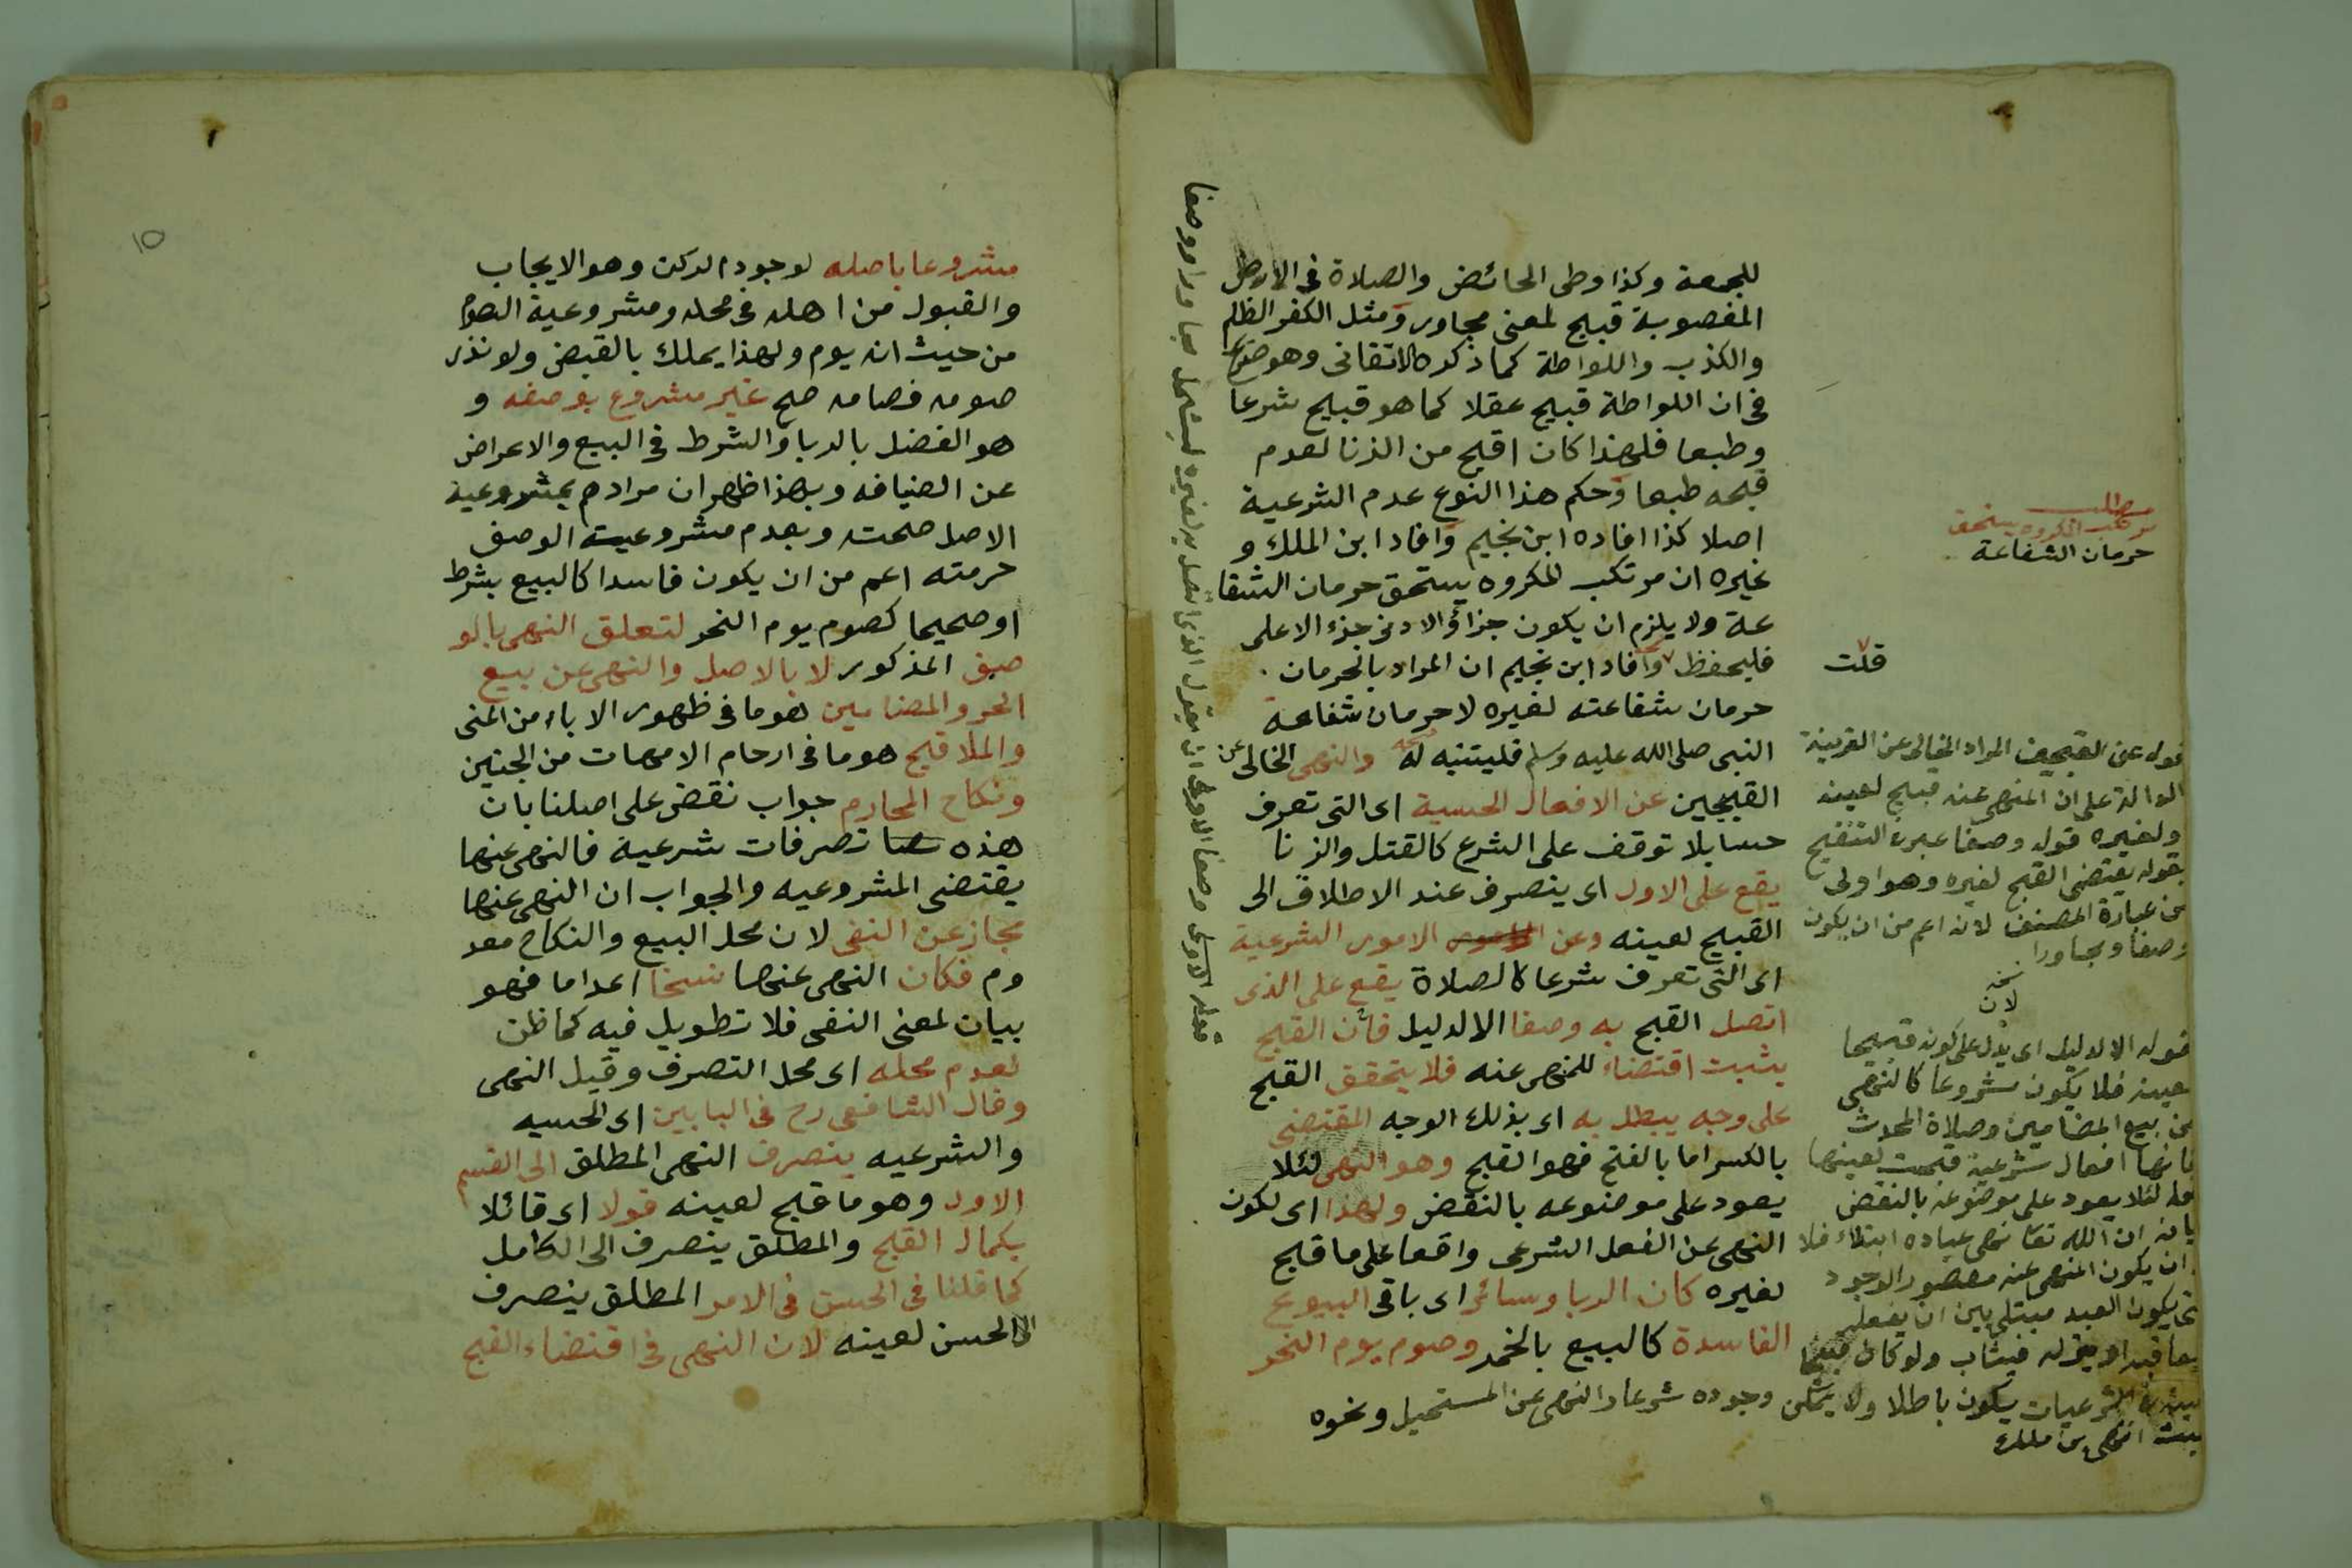 للجمعة وكذا وطى الحائض والصلاة فى الارض
المغصوبة قبيح لمعنى مجاور ومثل الكفر الظلم
والكذب واللواطة كما ذكره الاتقانى وهو صريح
فى ان اللواطة قبيح عقلا كما هو قبيح شرعا
وطبعا فلهذا كان اقبح من الزنا لعدم
قبحه طبعا وحكم هذا النوع عدم الشرعية
اصلا كذا افاده ابن نجيم وافاد ابن الملك و
غيره ان مرتكب المكروه يستحق حرمان الشفا
عة ولا يلزم ان يكون جزاؤ الادنى جزء الاعلى
فليحفظ وافاد ابن نجيم ان المراد بالحرمان
حرمان شفاعته لغيره لا حرمان شفاعة
النبى صلى الله عليه وسلم فليتنبه له والنهى الخالى عن
القبيحين عن الافعال الحسية اى التى تعرف
حسا بلا توقف على الشرع كالقتل والزنا
يقع على الاول اى ينصرف عند الاطلاق الى
القبيح لعينه وعن الامور الشرعية
اى التى تعرف شرعا كالصلاة يقع على الذى
اتصل القبح به وصفا الا لدليل فان القبح
يثبت اقتضاء للنهى عنه فلا يتحقق القبح
على وجه يبطل به اى بذلك الوجه المقتضى
بالكسر اما بالفتح فهو القبح وهو النهى لئلا
يعود على موضوعه بالنقض ولهذا اى لكون
النهى عن الفعل الشرعى واقعا على ما قبح
لغيره كان الربا وسائر اى باقى البيوع
الفاسدة كالبيع بالخمر وصوم يوم النحر
مطلب
مرتكب المكروه يستحق
حرمان الشفاعة
قلت
قوله عن القبيحين المراد الخالى عن القرينة
الدالة على ان المنهى عنه قبيح لعينه
ولغيره قوله وصفا عبر فى التنقيح
بقوله يقتضى القبح لغيره وهو اولى
من عبارة المصنف لانه اعم من ان يكون
وصفا ومجاورا
نسخه
لان
قوله الا لدليل اى يدل على كونه قبيحا
لعينه فلا يكون مشروعا كالنهى
عن بيع المضامين وصلاة المحدث
فانها افعال شرعية قبحت لعينها
قوله لئلا يعود على موضوعه بالنقض
بيانه ان الله تعا نهى عباده ابتلاء فلا
ان يكون المنهى عنه متصور الوجود
حتى يكون العبد مبتلى بين ان يفعله
فيعاقب او يتركه فيثاب ولو كان قبيحا
الشرعيات يكون باطلا ولا يمكن وجوده شرعا والنهى عن المستحيل ونحوه
عبث انتهى بن ملك
قوله الاولى وصفا الاولى ان يقول الذى اتصل به لغيره ليشمل مجاورا ووصفا
١٥
مشروعا باصله لوجود الركن وهو الايجاب
والقبول من اهله فى محله ومشروعية الصوم
من حيث انه يوم ولهذا يملك بالقبض ولو نذر
صومه فصامه صح غير مشروع بوصفه و
هو الفضل بالربا والشرط فى البيع والاعراض
عن الضيافه وبهذا ظهر ان مرادهم بمشروعية
الاصل صحته وبعدم مشروعيته الوصف
حرمته اعم من ان يكون فاسدا كالبيع بشرط
او صحيحا كصوم يوم النحر لتعلق النهى بالو
صف المذكور لا بالاصل والنهى عن بيع
الحر والمضامين هو ما فى ظهور الاباء من المنى
والملاقيح هو ما فى ارحام الامهات من الجنين
ونكاح المحارم جواب نقض على اصلنا بان
هذه تصرفات شرعية فالنهى عنها
يقتضى المشروعيه والجواب ان النهى عنها
مجاز عن النفى لان محل البيع والنكاح معد
وم فكان النهى عنها نسخا اعداما فهو
بيان لمعنى النفى فلا تطويل فيه كما ظن
لعدم محله اى محل التصرف وقيل النهى
وقال الشافعى رح فى البابين اى الحسيه
والشرعيه ينصرف النهى المطلق الى القسم
الاول وهو ما قبح لعينه قولا اى قائلا
بكمال القبح والمطلق ينصرف الى الكامل
كما قلنا فى الحسن فى الامر المطلق ينصرف
الى الحسن لعينه لان النهى فى اقتضاء القبح